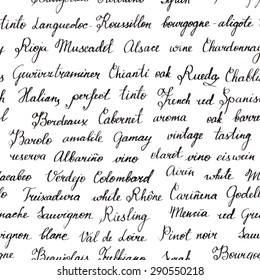 tinto Languedoc-Roussillon bourgogne-aligote t
y Rioja Muscadet Alsace wine Chardonnay
s Gewürztraminer Chianti oak Rueda Chabli
h Italian perfect tinto French red Spanis
l Bordeaux Cabernet aroma oak barre
Barolo amabile Gamay vintage tasting
reserva Albariño vino claret vino eiswein
acabeo Verdejo Colombard Airén white M
lo Treixadura white Rhône Cariñena Godell
nache Sauvignon Riesling Mencia red Gre
vignon blanc Val de Loire Pinot noir Sauv
ne Beaujolais Syrah Bourgog
www.shutterstock.com · 290550218